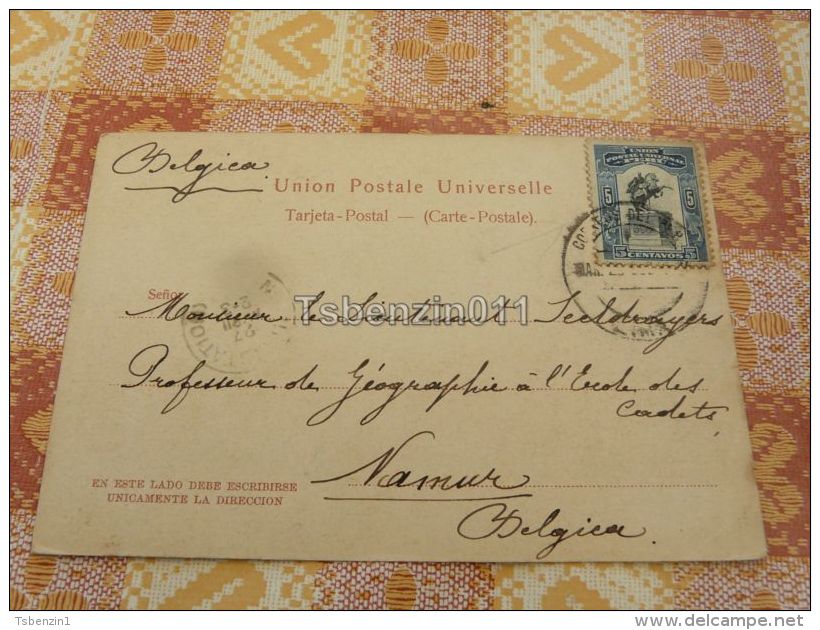 Belgica
UNION
POSTAL UNIVERSAL
PERU
5 5
5 CENTAVOS 5
Union Postale Universelle
Tarjeta-Postal — (Carte-Postale).
Señor
Tsbenzin011
Monsieur le Lieutenant Seeldrayers
Professeur de Géographie à l'École des
Cadets
EN ESTE LADO DEBE ESCRIBIRSE
UNICAMENTE LA DIRECCION
Namur
Belgica.
Tsbenzin1
delcampe.net